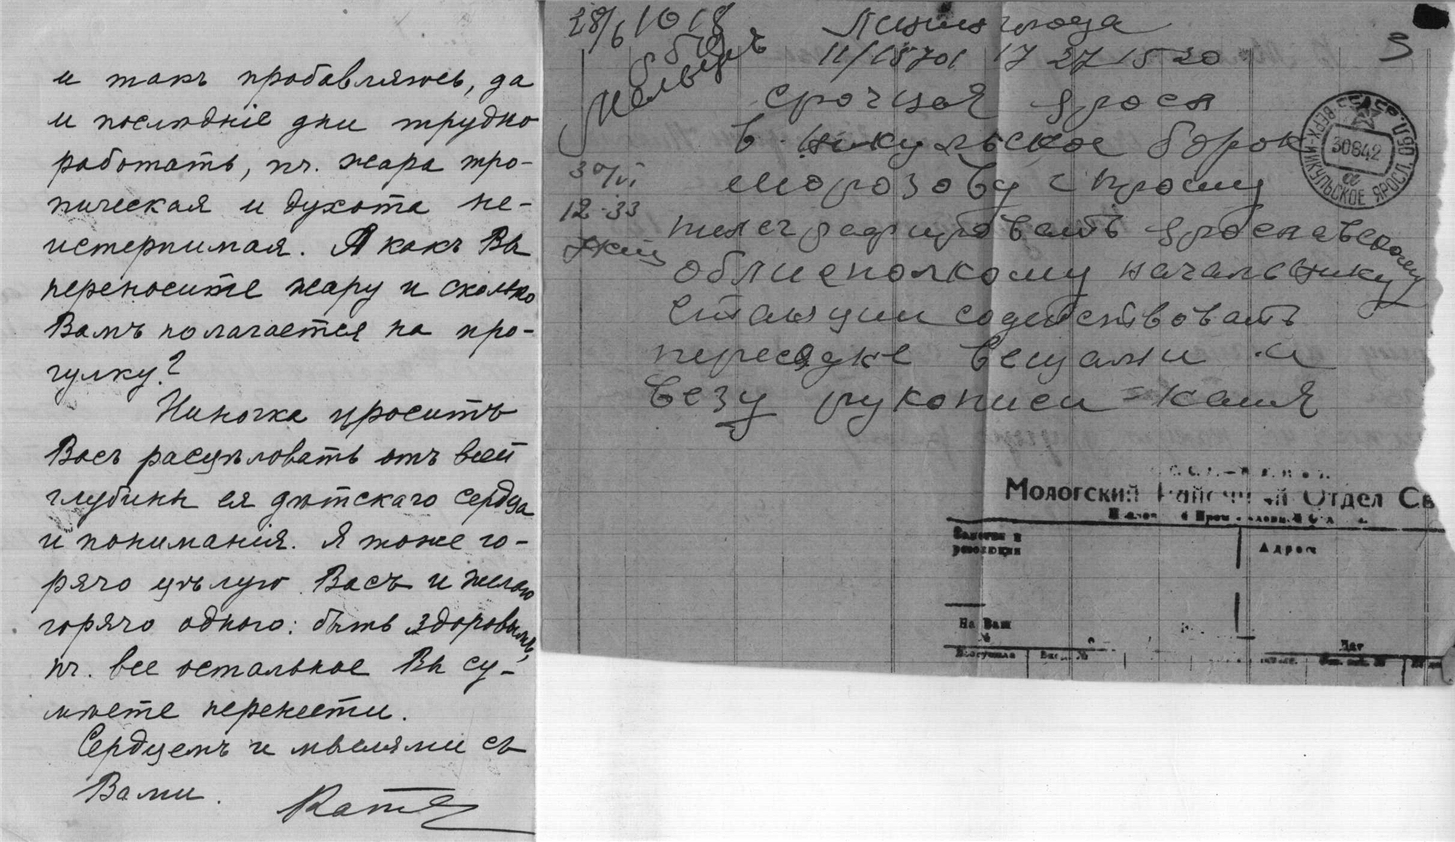 и такъ пробавляюсь, да
и послѣднiе дни трудно
работать, пч. жара тро-
пическая и духота не-
истерпимая. А какъ Вы
переносите жару и сколько
Вамъ полагается на про-
гулку?
Ниночка проситъ
Васъ расцѣловать отъ всей
глубины ея дѣтскаго сердца
и пониманiя. Я тоже го-
рячо цѣлую Васъ и желаю
горячо одного: быть здоровымъ,
пч. все остальное Вы су-
мѣете перенести.
Сердцемъ и мыслями съ
Вами. Катя
28/6 1018
11/18701 17 27 15-20
3
срочная яросл
в никульское борок
30/VI морозову спрошу
12-33 телеграфировать ярославскому
облисполкому начальнику
станции содействовать
пересадке вещами и
везу рукописи = катя
30 6 42
ВЕРХ-НИКУЛЬСКОЕ ЯРОСЛ. ОБЛ.
Мологский Районный Отдел Св
Адрес
На Ваш
№